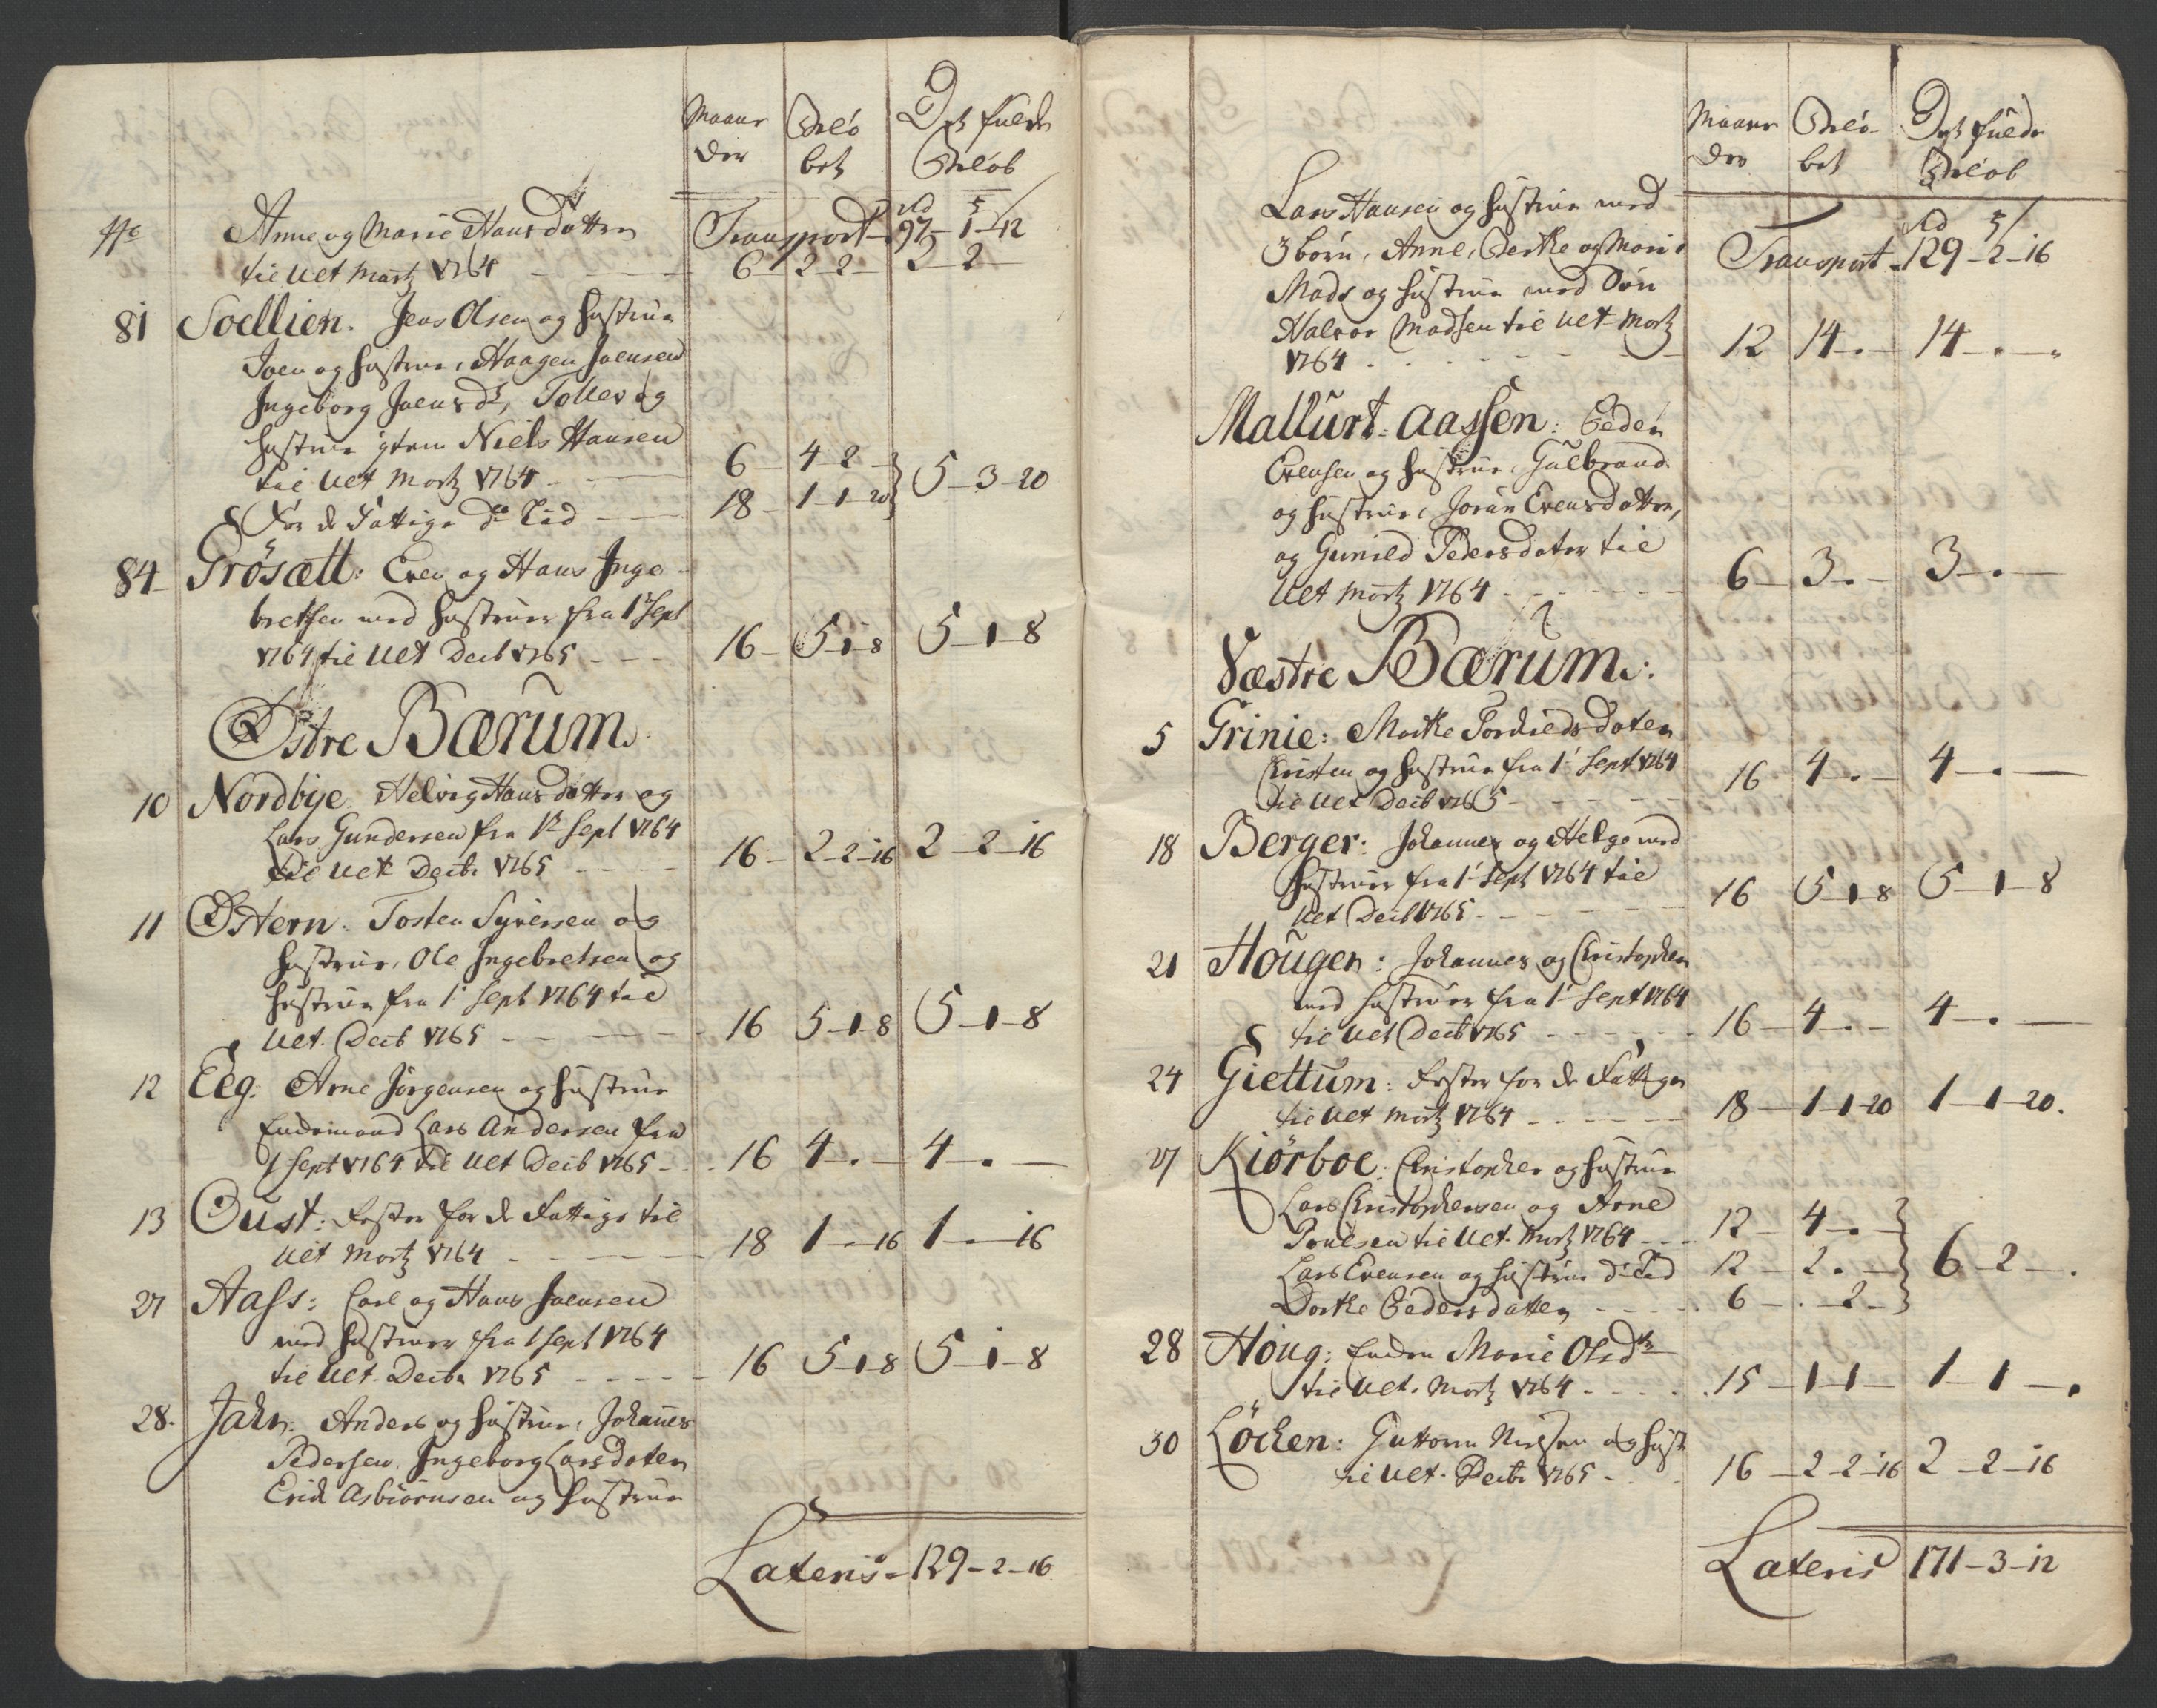 Maane
der
Belö
bet
Det fulde
Belöb
No
Anne og Marie Hans Dotter
Transport – 97 – 1 – 12
til Ult Martz 1764 – – – 6 – 2 – 2 – 2 – 2 –
81 Soellien. Jens Olsen og Hustrue
Joen og Hustrue, Haagen Joensen
Ingeborg Joensdr, Tollev og
Hustrue Niels Hansen
til Ult Martz 1764 – – 6 – 4 – 2 –
For de Fattige do Tid – – 18 – 1 – 1 – 20 } 5 – 3 – 20
84 Grösætt: Even og Hans Inge-
bretsen med Hustruer fra 1 Sept
1764 til Ult Decb 1765 – – – 16 – 5 – 1 – 8 5 – 1 – 8
Østre Bærum.
10 Nordbye. Helvig Hansdotter og
Lars Gundersen fra 1 Sept 1764
til Ult Decbr 1765 – – – 16 – 2 – 2 – 16 2 – 2 – 16
11 Østern. Tosten Syversen og
Hustrue, Ole Ingebretsen og
Hustrue fra 1 Sept 1764 til
Ult. Decb 1765 – – – – 16 5 – 1 – 8 5 – 1 – 8
12 Eeg. Arne Jörgensen og Hustrue
Enkemand Lars Andersen fra
1 Sept 1764 til Ult Decb 1765 – – 16 4 – . – 4 – . –
13 Oust: Rester for de Fattige til
Ult Martz 1764 – – – – 18 1 – . – 16 1 – . – 16
27 Aass: Carl og Hans Joensen
med Hustruer fra 1 Sept 1764
til Ult. Decbr 1765 – – – – 16 5 – 1 – 8 5 – 1 – 8
28. Jahr. Anders og Hustrue, Johanes
Pedersen, Ingeborg Larsdoter
Erich Asbiörnsen og Hustrue
Lateris – 129 – 2 – 16
Maane
der
Belö-
bet
Det fulde
Belöb
Lars Hansen og Hustrue med
3 börn, Anne, Berthe og Marie
Transport – 129 – 2 – 16
Mads og Hustrue med Sön
Halvor Madsen til Ult Martz
1764 – – – – 12 14 – . – 14 – . – .
Mallurt-aassen: Peder
Evensen og Hustrue, Gulbrand
og Hustrue, Joran Evensdotter,
og Gunild Pedersdoter til
Ult Martz 1764 – – – – 6 – 3 – . – 3 – . –
Væstre Bærum:
5 Grinie: Marthe Torkieldsdoter
Christen og Hustrue fra 1 Sept 1764
til Ult Decb 1765 – – – 16 4 – . – 4 – . –
18 Berger: Johannes og Helge med
Hustruer fra 1 Sept 1764 til
Ult Decb 1765 – – – – 16 5 – 1 – 8 5 – 1 – 8
21 Hougen: Johannes og Christopher
med Hustruer fra 1 Sept 1764
til Ult Decb 1765 – – – – 16 – 4 – . – 4 – . –
24 Giettum: Rester for de Fattige
til Ult Martz 1764 – – – – 18 – 1 – 1 – 20 1 – 1 – 20.
27 Kiörboe: Christopher og Hustrue
Lars Christophersen og Arne
Poulsen til Ult. Martz 1764 – – 12 – 4 – . –
Lars Evensen og Hustrue do Tid 12 – 2 . – } 6 – 2 – .
Dorthe Pedersdatter – – – 6 – . – 2 –
28 Houg: Enken Marie Olsdr
til Ult. Martz 1764 – – – – 15 – 1 – 1 – 1 – 1 – .
30 Löchen: Guttorm Nielsen og Hust
til Ult. Decbr 1765 – – 16 – 2 – 2 – 16 2 – 2 – 16
Lateris 171 – 3 – 12